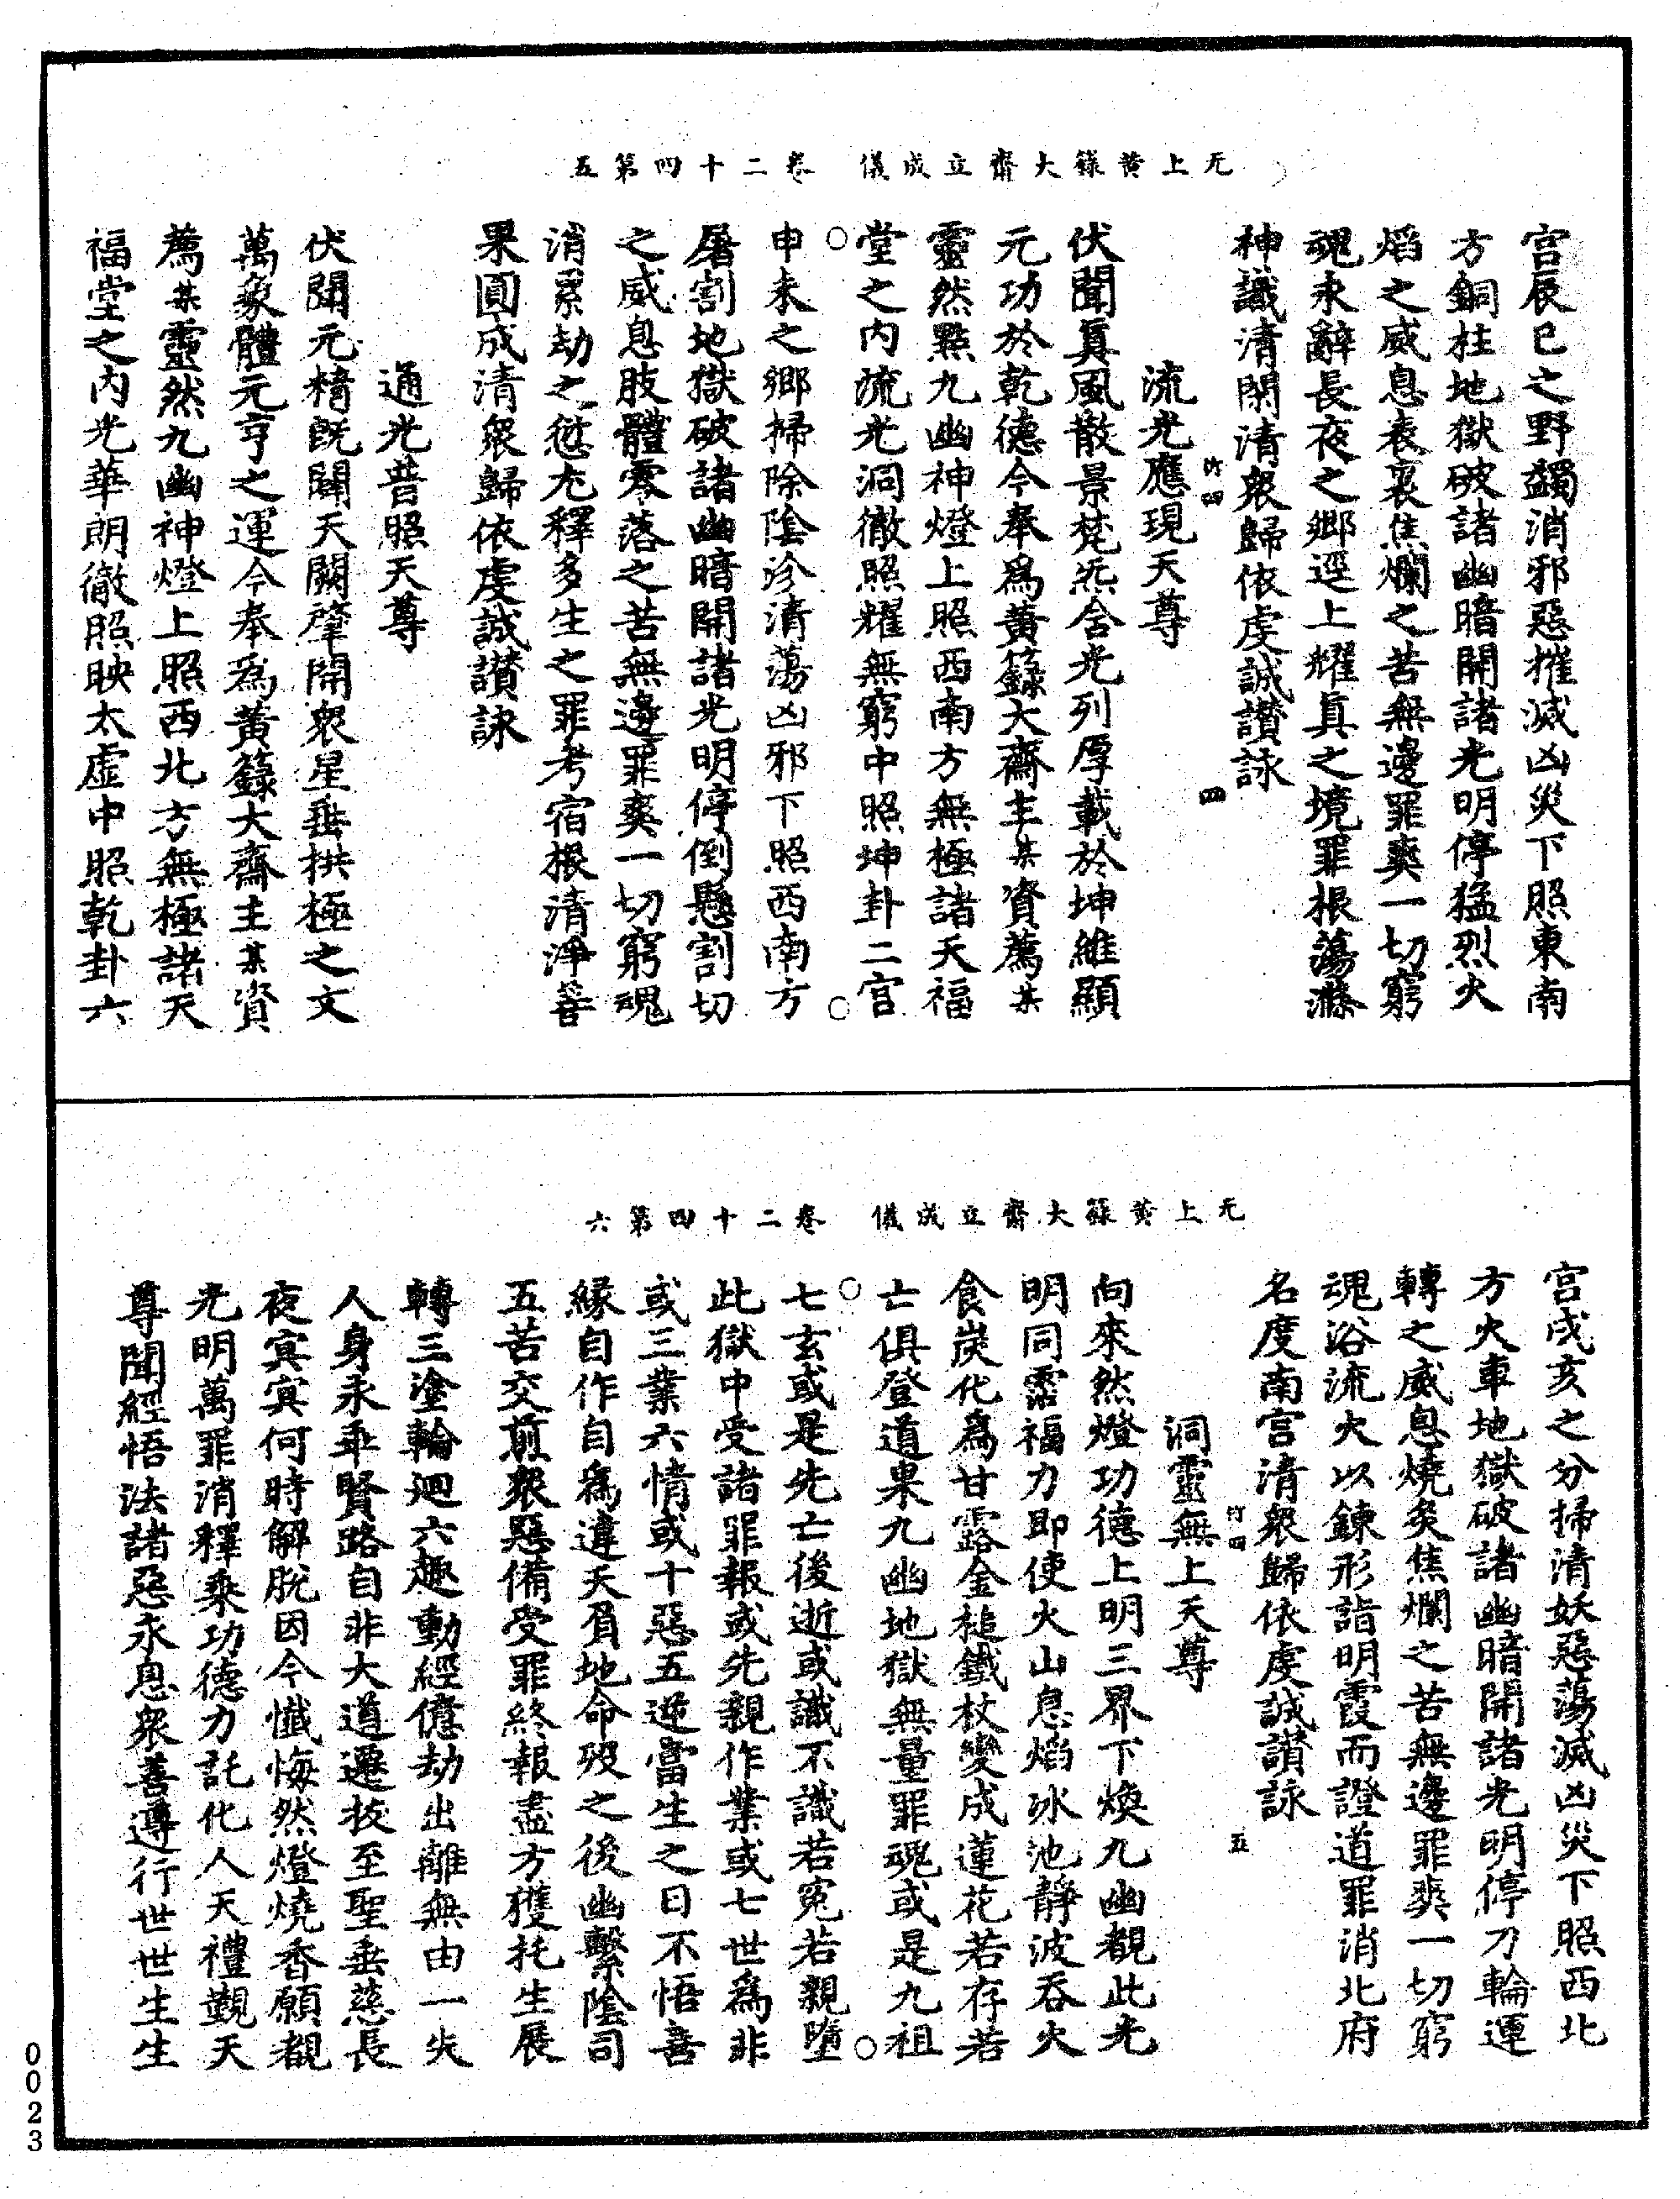 无上黄籙大齋立成儀　卷二十四第五
宫辰巳之野蠲消邪惡摧滅凶災下照東南
方銅柱地獄破諸幽暗開諸光明停猛烈火
焰之威息表裏焦爛之苦無邊罪爽一切窮
魂永辭長夜之鄉逕上耀真之境罪根蕩滌
神識清閑清衆歸依虔誠讃詠
竹四　四
流光應現天尊
伏聞真風散景梵炁含光列厚載於坤維顯
元功於乾德今奉爲黄籙大齋主某資薦某
靈然點九幽神燈上照西南方無極諸天福
堂之内流光洞徹照耀無窮中照坤卦二宫
申未之鄉掃除陰沴清蕩凶邪下照西南方
屠割地獄破諸幽暗開諸光明停倒懸割切
之威息肢體零落之苦無邊罪爽一切窮魂
消累劫之愆尤釋多生之罪考宿根清淨善
果圓成清衆歸依虔誠讃詠
通光普照天尊
伏聞元精旣闢天闕肇開衆星垂拱極之文
萬象體元亨之運今奉爲黄籙大齋主某資
薦某靈然九幽神燈上照西北方無極諸天
福堂之内光華朗徹照映太虛中照乾卦六
无上黄籙大齋立成儀　卷二十四第六
宫戌亥之分掃清妖惡蕩滅凶災下照西北
方火車地獄破諸幽暗開諸光明停刀輪運
轉之威息燒炙焦爛之苦無邊罪爽一切窮
魂浴流火以鍊形詣明霞而證道罪消北府
名度南宫清衆歸依虔誠讃詠
竹四　五
洞靈無上天尊
向來然燈功德上明三界下煥九幽覩此光
明同霑福力即使火山息焰冰池靜波吞火
食炭化爲甘露金槌鐵杖變成蓮花若存若
亡俱登道果九幽地獄無量罪魂或是九祖
七玄或是先亡後逝或識不識若寃若親墮
此獄中受諸罪報或先親作業或七世爲非
或三業六情或十惡五逆當生之日不悟善
緣自作自爲違天負地命殁之後幽繫陰司
五苦交煎衆惡備受罪終報盡方獲托生展
轉三塗輪迴六趣動經億劫出離無由一失
人身永乖賢路自非大道遷拔至聖垂慈長
夜冥冥何時解脫因今懺悔然燈燒香願覩
光明萬罪消釋乘功德力託化人天禮覲天
尊聞經悟法諸惡永息衆善遵行世世生生
0023